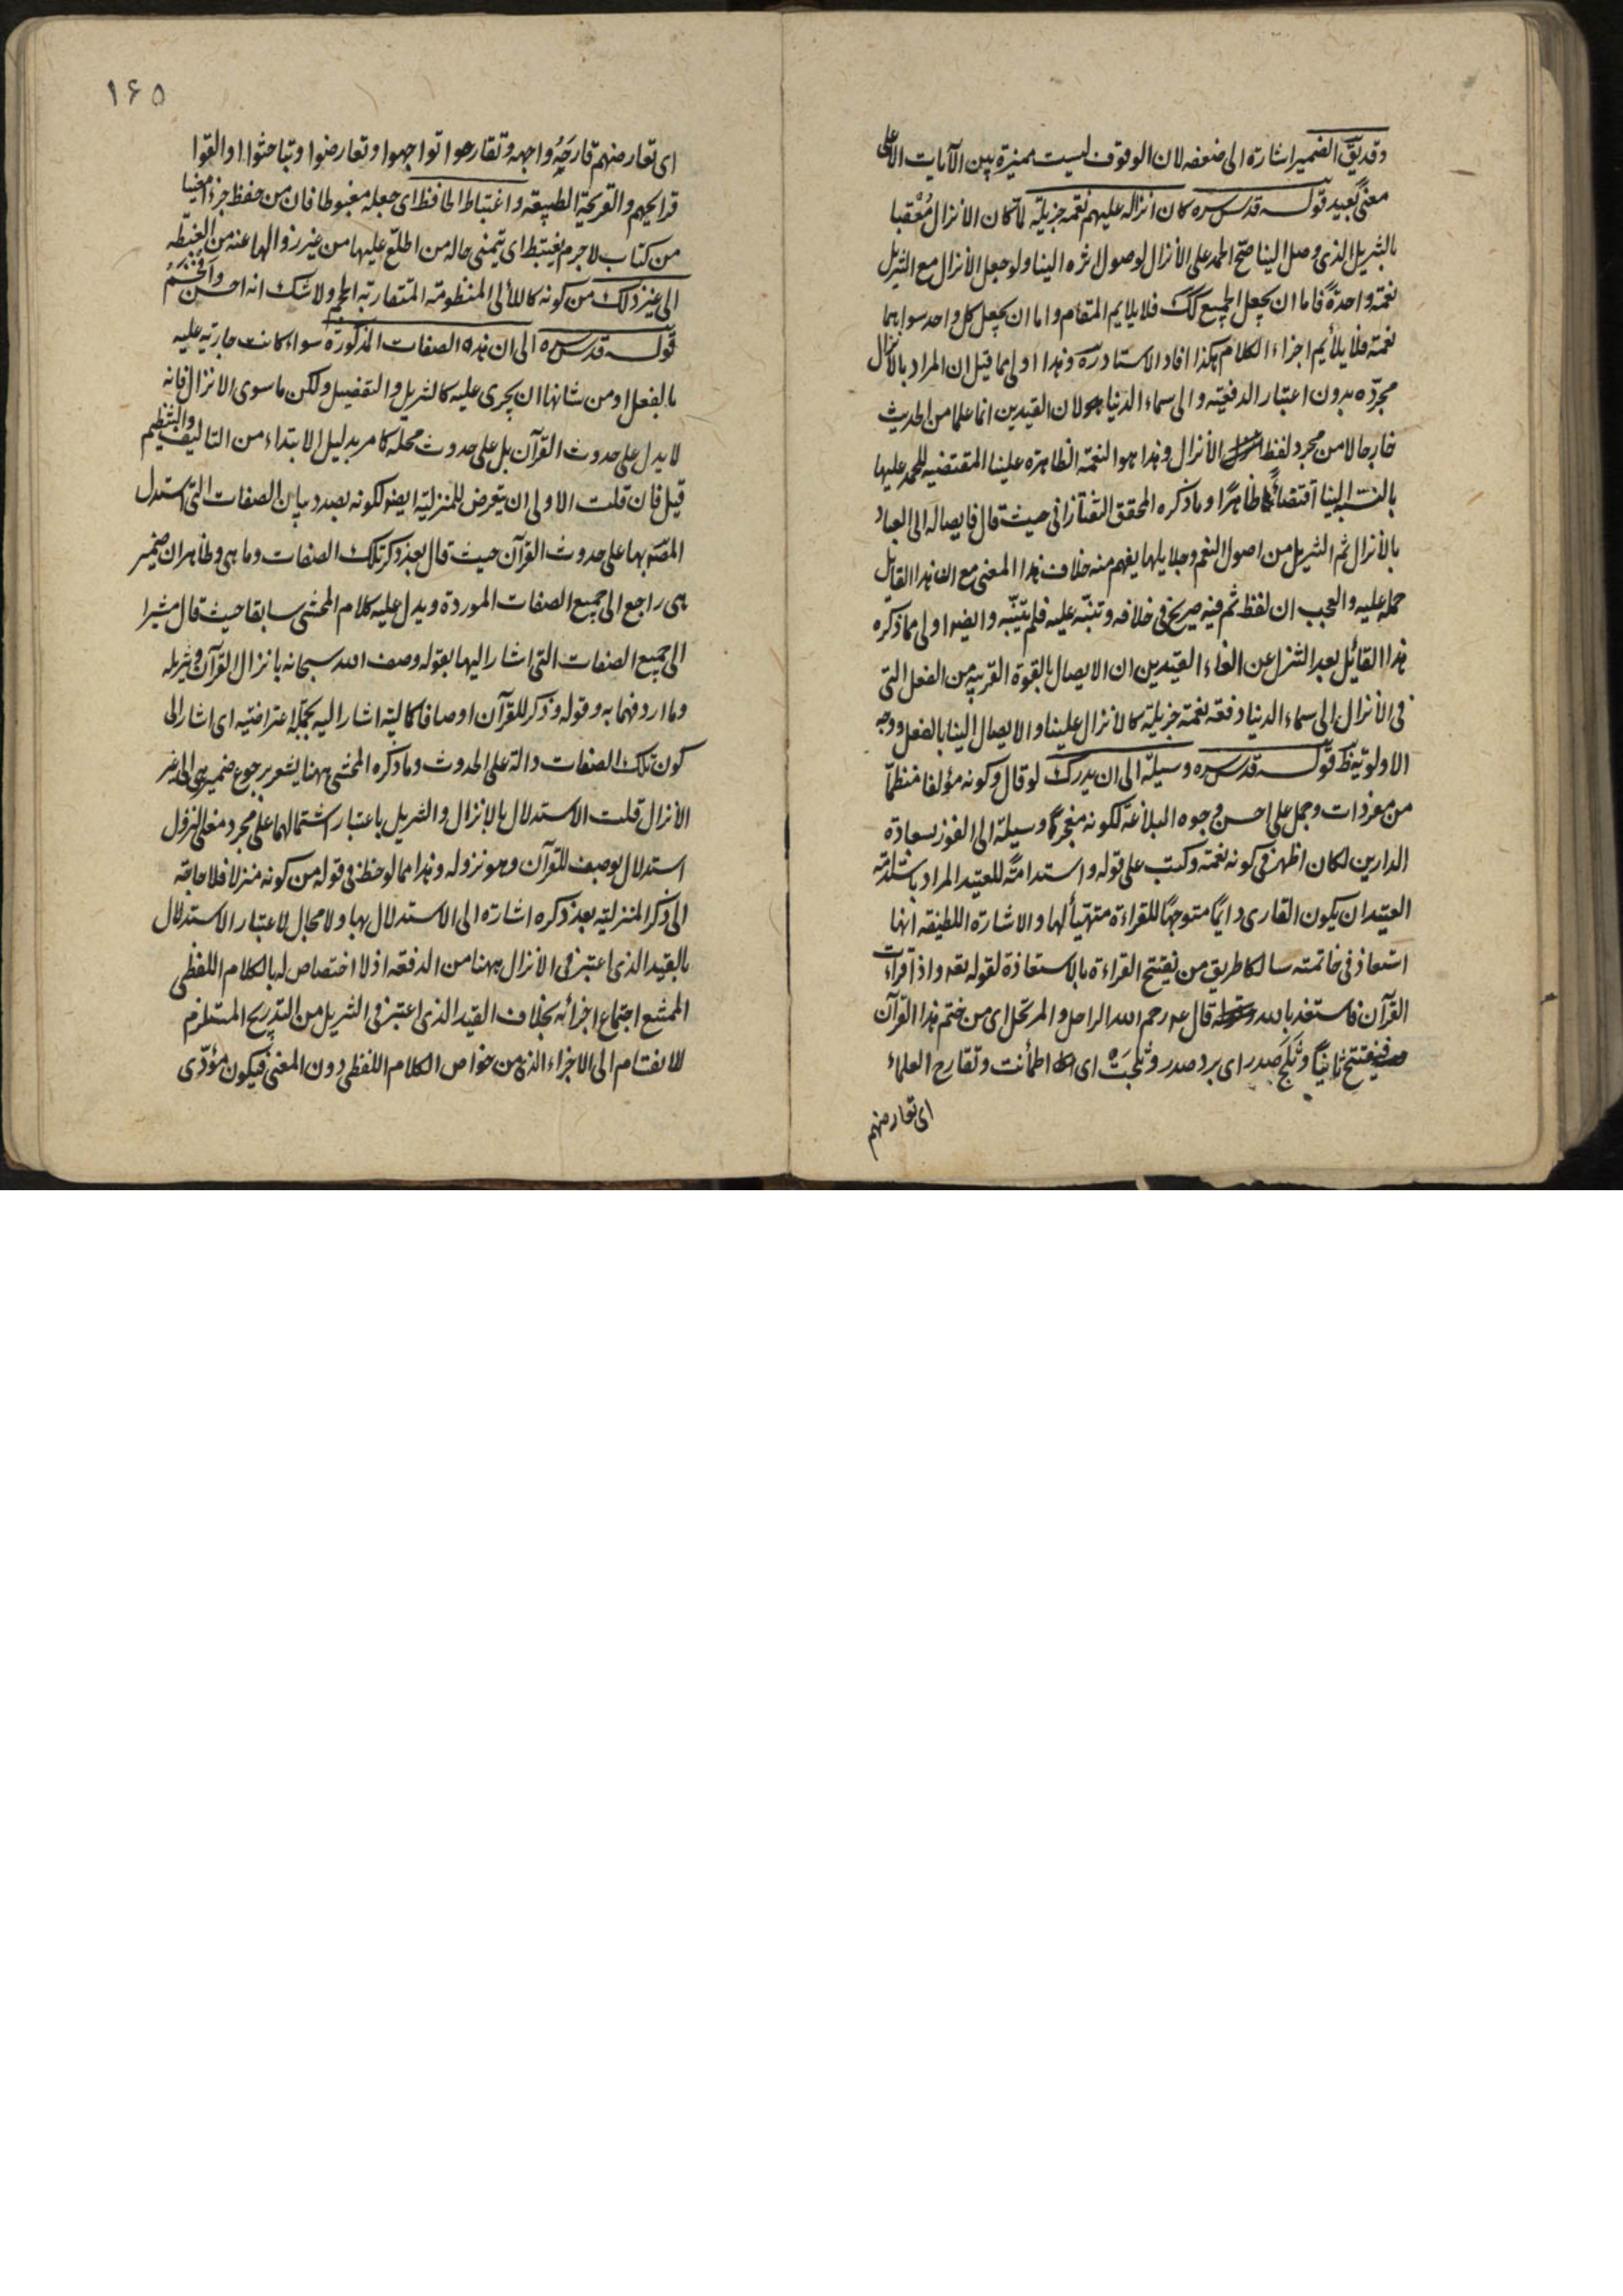 وقديقّ الضمير اشارة الى ضعفه لان الوقوف ليست مميزة بين الآيات الا على
معنى بعيد قوله قدس سره كان انزاله عليهم نعمة جزيلة لما كان الانزال مُعْقبا
بالتنزيل الذى وصل الينا صحّ الحمد على الانزال لوصول اثره الينا ولو جعل الانزال مع التنزيل
نعمة واحدة فاما ان يجعل الجميع كك فلا يلايم المقام واما ان يجعل كل واحد سواهما
نعمة فلا يلائم اجزاء الكلام هكذا افاد الاستاد ره وهذا اولى مما قيل ان المراد بالانزال
مجرّده بدون اعتبار الدفعية والى سماء الدنيا ولان القيدين انما علما من الحديث
خارجا لا من مجرد لفظ الانزال وهذا هو النعمة الظاهرة علينا المقتضية للحمد عليها
بالنسبة الينا اقتضاءً ظاهرًا وما ذكره المحقق التفتازانى حيث قال فايصاله الى العباد
بالانزال ثم التنزيل من اصول النعم وجلايلها يفهم منه خلاف هذا المعنى مع ان هذا القايل
حمله عليه والعجب ان لفظ ثم فيه صريح فى خلافه وتنبّه عليه فلم يتنبّه وايضا اولى مما ذكره
هذا القائل بعد التنزل عن الغاء القيدين ان الايصال بالقوة القريبة من الفعل التى
فى الانزال الى سماء الدنيا دفعة نعمة جزيلة كالانزال علينا والايصال الينا بالفعل ووجه
الاولوية ظ قوله قدس سره وسيلة الى ان يدرك لو قال وكونه مؤلفا منظمّا
من مفردات وجمل على احسن وجوه البلاغة لكونه معجزًا وسيلة الى الفوز بسعادة
الدارين لكان اظهر فى كونه نعمة وكتب على قوله واستدامةً للعتيد المراد باستدامة
العتيد ان يكون القارى دايمًا متوجهًا للقراءة متهيّأ لها والاشارة اللطيفة انها
استعاذ فى خاتمته سالكا طريق من يفتتح القراءة بالاستعاذة لقوله تعه واذا قرأت
القرآن فاستعذ بالله قال عه رحم الله الراحل والمرتحل اى من ختم هذا القرآن
فيفتتح ثانيًا وثَلَج صدر اى برد صدر وثلجَت اى اطمأنت وتقارح العلماء
اى تعارضهم
١۶٥
اى تعارضهم قارحَهُ واجهه وتقارحوا تواجهوا وتعارضوا وتباحثوا او القوا
قرايحهم والقريحة الطبيعة واغتباط الحافظ اى جعله مغبوطا فان من حفظ جزءا معيّنا
من كتاب لاجرم يغتبط اى يتمنى حاله من اطلع عليها من غير زوالها عنه من الغبطة
الى غير ذلك من كونه كاللألى المنظومة المتقاربة الحجم ولا شك انه احسن وافخم
قوله قدس سره الى ان هذه الصفات المذكورة سواء كانت جارية عليه
بالفعل او من شانها ان يجرى عليه كالتنزيل والتفضيل ولكن ما سوى الانزال فانه
لا يدل على حدوث القرآن بل على حدوث محلّه كامر بدليل الابتداء من التاليف والتنظيم
قيل فان قلت الاولى ان يتعرض للمنزلية ايضا لكونه بصدد بيان الصفات التى استدل
المصّ بها على حدوث القرآن حيث قال بعد ذكر تلك الصفات وما هى وظاهر ان ضمير
هى راجع الى جميع الصفات الموردة ويدل عليه كلام المحشى سابقا حيث قال مشيرا
الى جميع الصفات التى اشار اليها بقوله وصف الله سبحانه بانزال القرآن وتنزيله
وما اردفهما به وقوله وذكر للقرآن اوصافا كمالية اشار اليه بجملة اعتراضية اى اشار الى
كون تلك الصفات دالة على الحدوث وما ذكره المحشى ههنا يشعر برجوع ضمير هى الى غير
الانزال قلت الاستدلال بالانزال والتنزيل باعتبار اشتمالهما على مجرد معنى النزول
استدلال بوصف للقرآن وهو نزوله وهذا مما لوحظ فى قوله من كونه منزلا فلا حاجة
الى ذكر المنزلية بعد ذكره اشارة الى الاستدلال بها ولا مجال لاعتبار الاستدلال
بالقيد الذى اعتبر فى الانزال ههنا من الدفعة اذ لا اختصاص له بالكلام اللفظى
الممتنع اجتماع اجزائه بخلاف القيد الذى اعتبر فى التنزيل من التدريج المستلزم
للانقسام الى الاجزاء الذى من خواص الكلام اللفظى دون المعنى فيكون مؤدّى